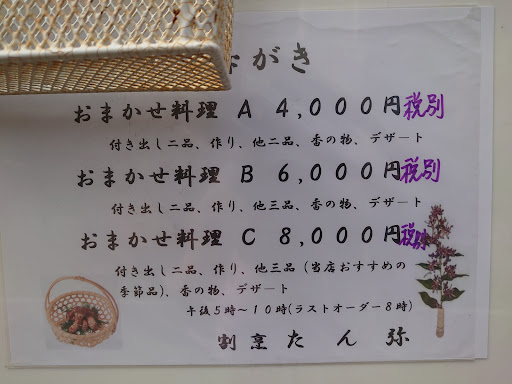 がき
おまかせ料理 A 4,000円税別
付き出し二品、作り、他二品、香の物、デザート
おまかせ料理 B 6,000円税別
付き出し二品、作り、他三品、香の物、デザート
おまかせ料理 C 8,000円税別
付き出し二品、作り、他三品(当店おすすめの
季節品)、香の物、デザート
午後5時～10時(ラストオーダー8時)
割烹たん弥